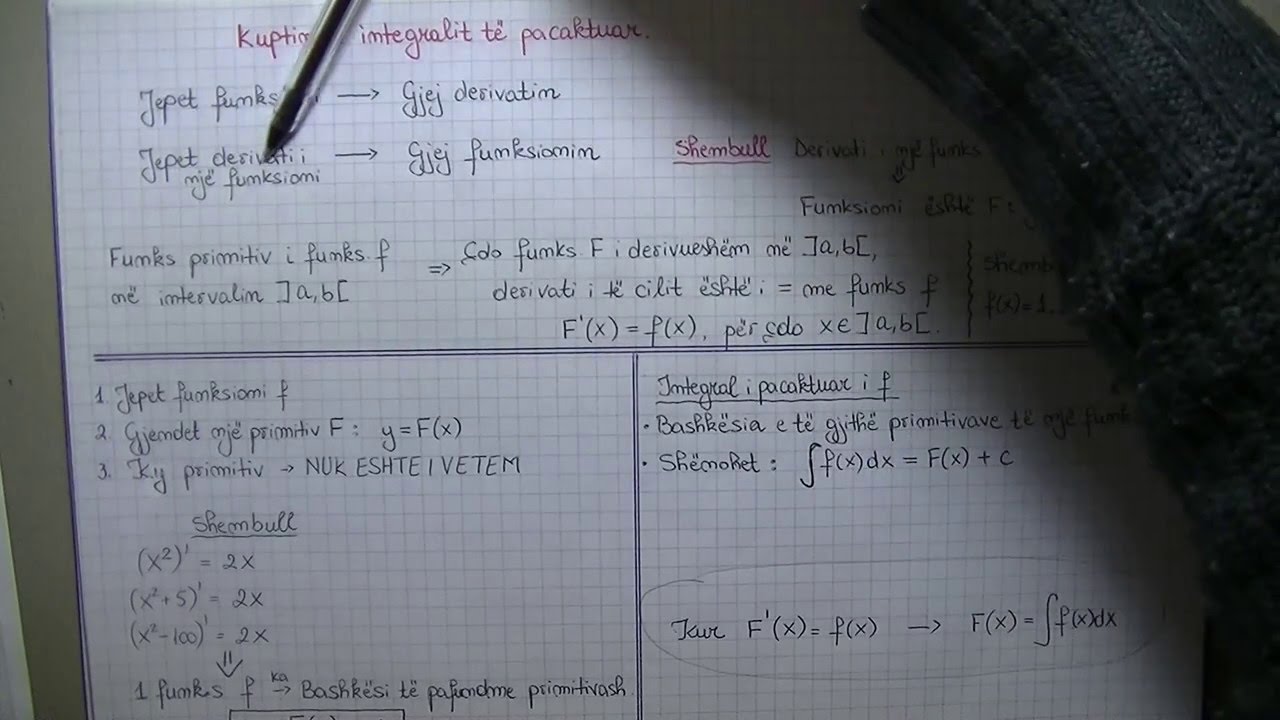 integralit të pacaktuar.
Jepet → Gjej derivatin
Jepet derivati i → Gjej funksionin
një funksioni
Shembull Derivati i një funks
⇓
Funksioni është F:
Funks primitiv i funks. f
në intervalin ]a,b[
⇒ Çdo funks. F i derivueshëm në ]a,b[,
derivati i të cilit është i = me funks f
F'(x) = f(x), për çdo x∈]a,b[.
f(x)=1.
1. Jepet funksioni f
2. Gjendet një primitiv F: y=F(x)
3. Ky primitiv → NUK ESHTE I VETEM
Shembull
(x²)' = 2x
(x²+5)' = 2x
(x²-100)' = 2x
⇓
1 funks f ka → Bashkësi të pafundme primitivash
Integral i pacaktuar i f
• Bashkësia e të gjithë primitivave të një funk
• Shënohet: ∫f(x)dx = F(x) + c
Kur F'(x) = f(x) → F(x) = ∫f(x)dx